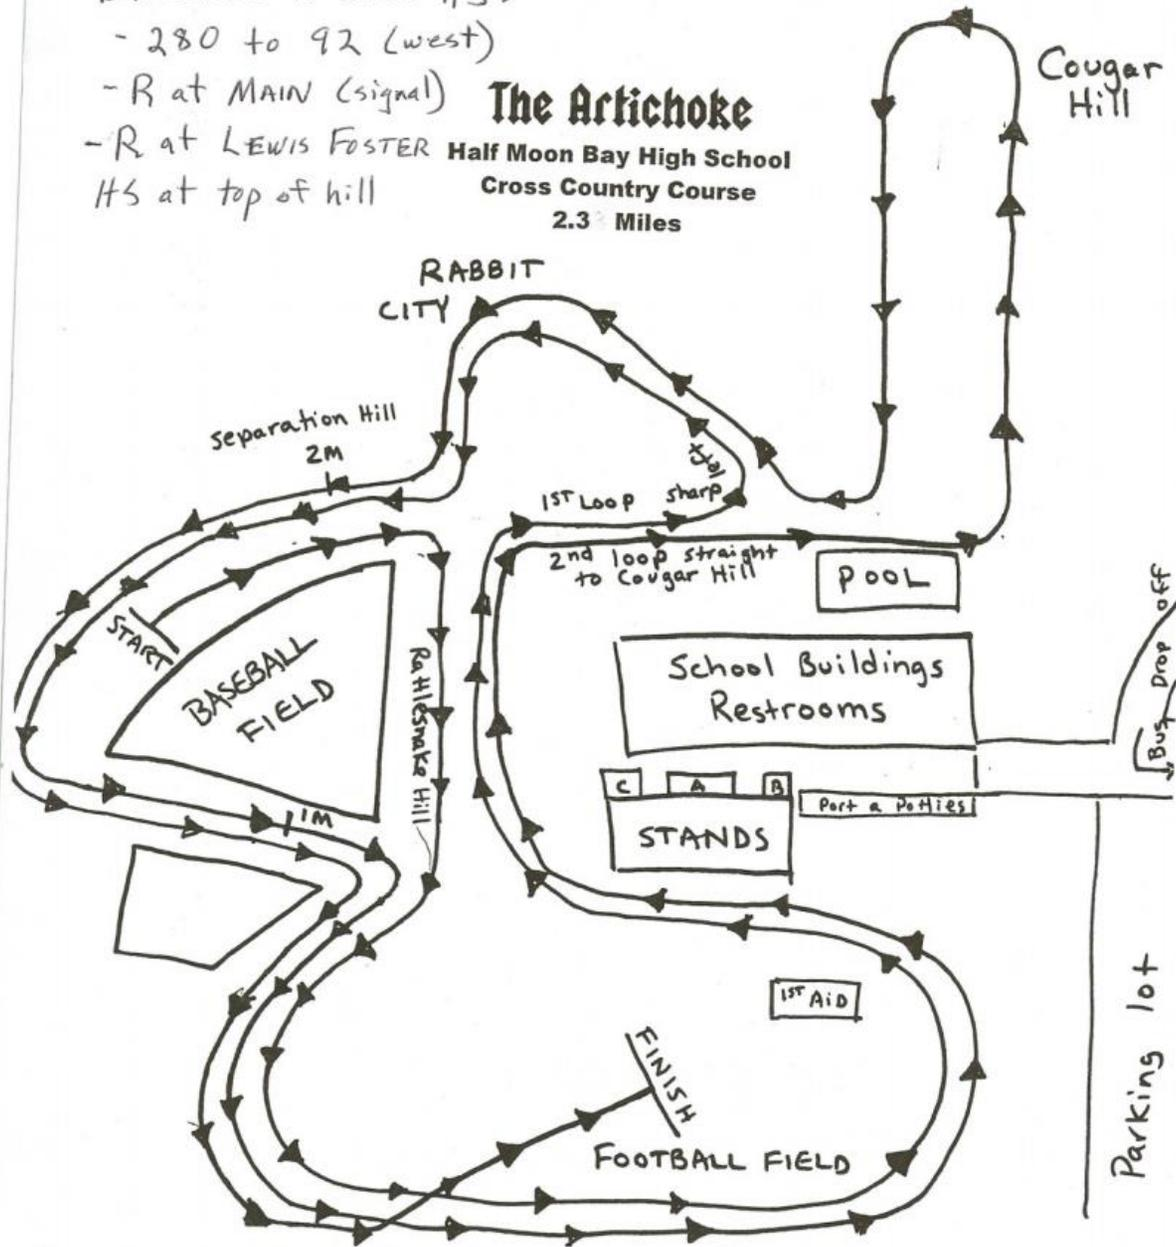 - 280 to 92 (west)
- R at MAIN (signal)
- R at LEWIS FOSTER
HS at top of hill
The Artichoke
Half Moon Bay High School
Cross Country Course
2.3 Miles
Cougar
Hill
RABBIT
CITY
Separation Hill
2M
1ST LOOP
sharp
left
2nd loop straight
to Cougar Hill
POOL
START
BASEBALL
FIELD
Rattlesnake Hill
School Buildings
Restrooms
Bus Drop off
C
A
B
Port a Potties
STANDS
1M
1ST AID
FINISH
FOOTBALL FIELD
Parking lot